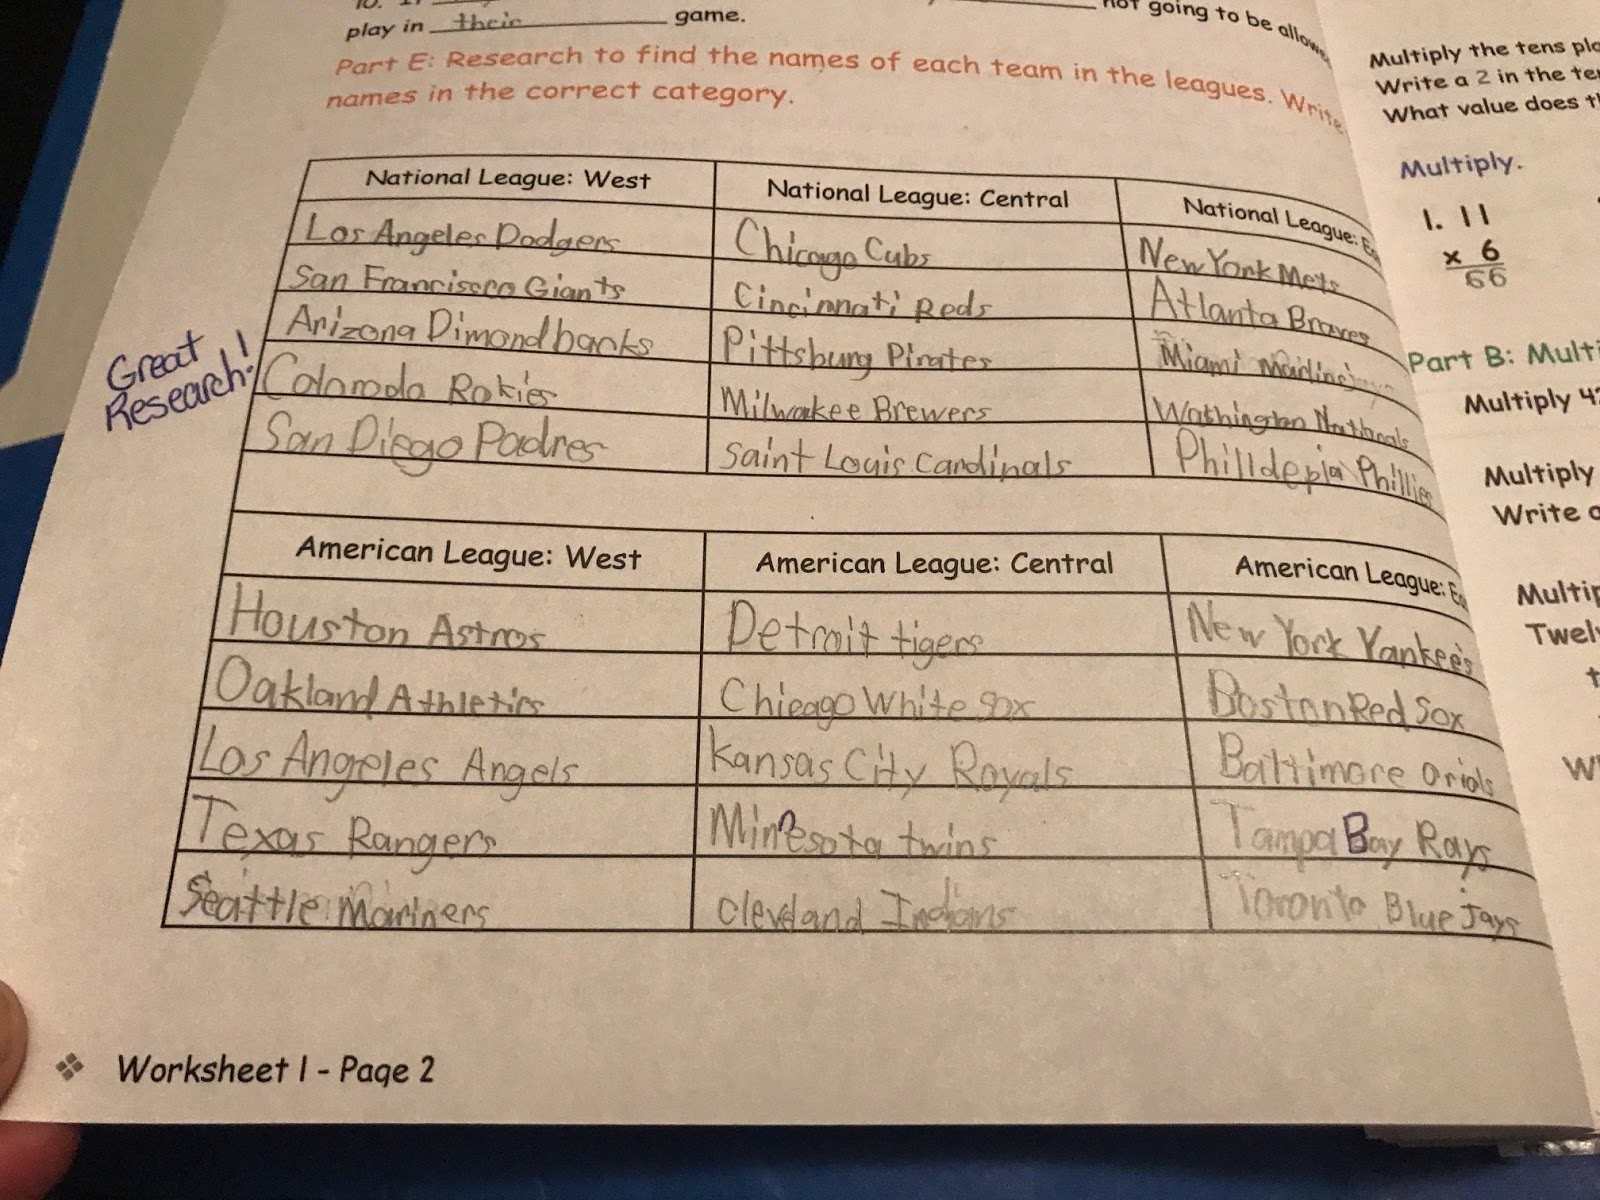 play in their game.
not going to be allow
Part E: Research to find the names of each team in the leagues. Write
names in the correct category.
National League: West National League: Central National League: Ea
Los Angeles Dodgers Chicago Cubs New York Mets
San Francissco Giants Cincinnati Reds Atlanta Braves
Arizona Dimondbanks Pittsburg Pirates Miami Marlins
Coloroda Rokies Milwakee Brewers Wathington Nationals
San Diego Padres Saint Louis Cardinals Philldepia Phillies
Great
Research!
American League: West American League: Central American League: Ea
Houston Astros Detroit tigers New York Yankee's
Oakland Athletics Chicago White Sox Boston Red Sox
Los Angeles Angels Kansas City Royals Baltimore Oriols
Texas Rangers Minnesota twins Tampa Bay Rays
Seattle Mariners Cleveland Indians Toronto Blue Jays
Worksheet 1 - Page 2
Multiply the tens pla
Write a 2 in the te
What value does t
Multiply.
1. 11
x 6
66
Part B: Multi
Multiply 4
Multiply
Write a
Multip
Twel
t
W